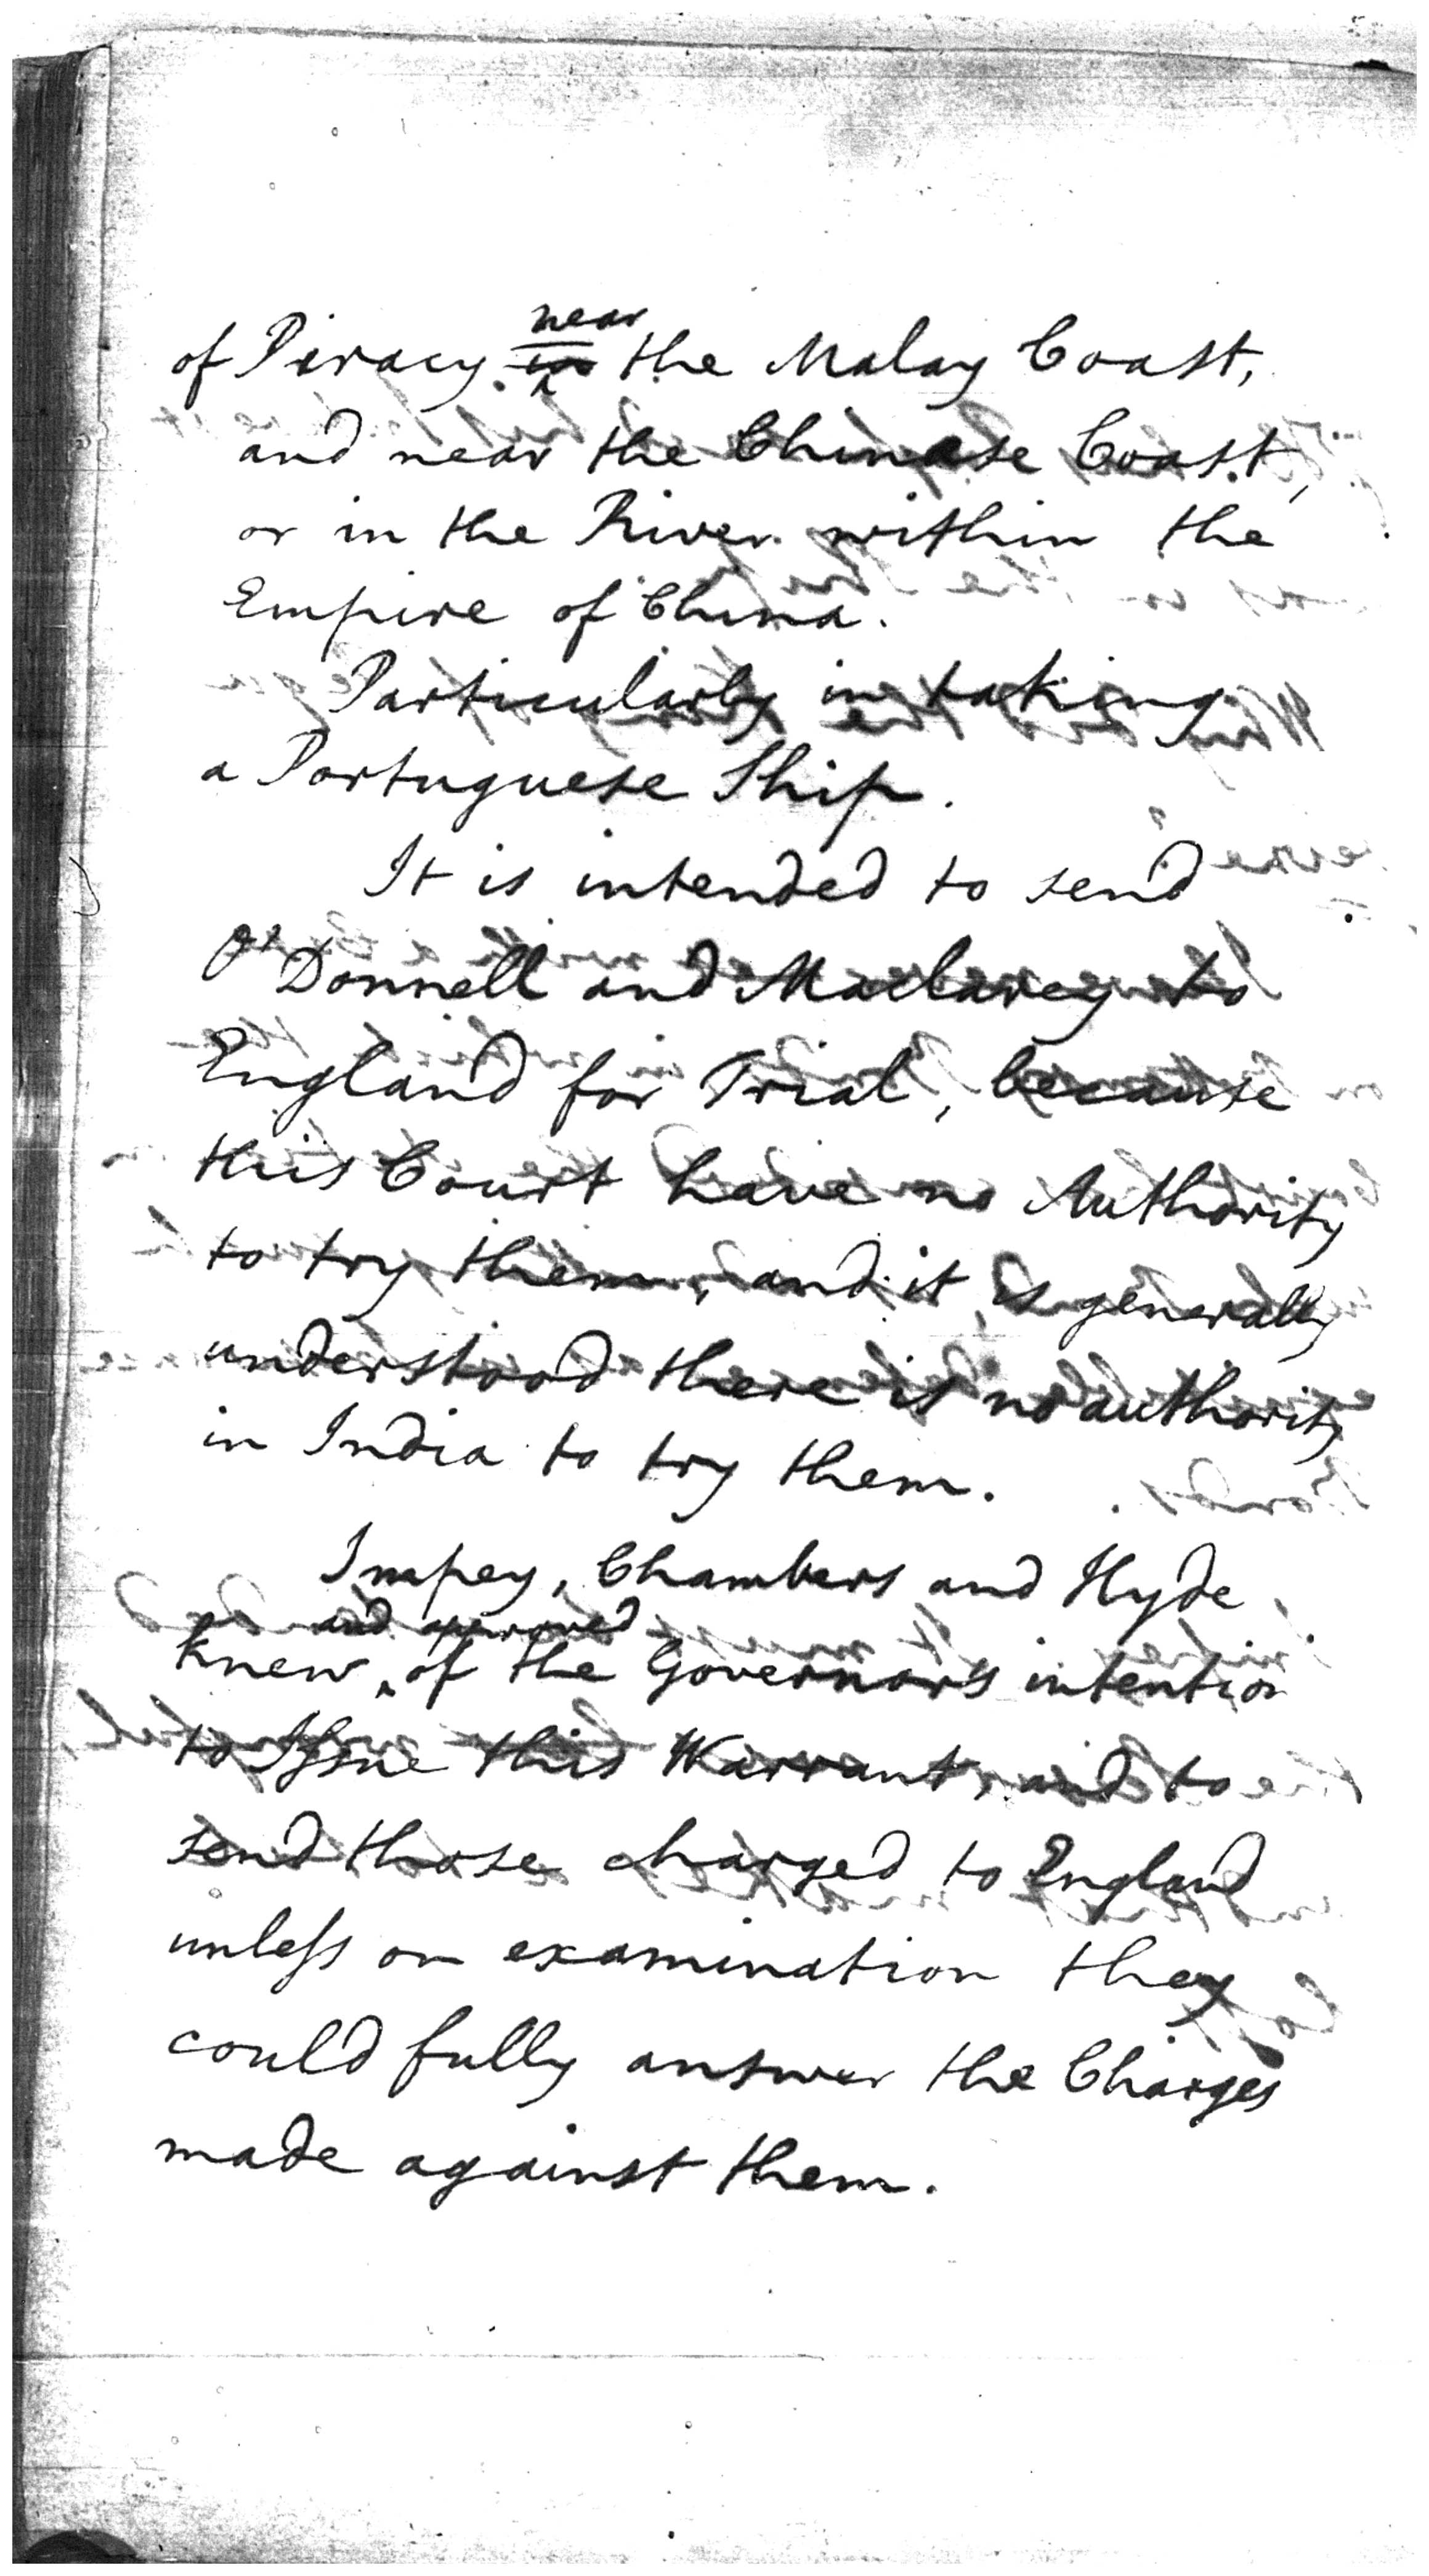 of Piracy near the Malay Coast,
and near the Chinese Coast,
or in the River within the
Empire of China.
Particularly in taking
a Portuguese Ship.
It is intended to send
O'Donnell and Maclarey to
England for Trial, because
this Court have no Authority
to try them, and it is generally
understood there is no authority
in India to try them.
Impey, Chambers and Hyde
and approved
knew of the Governor's intention
to Issue this Warrant, and to
send those charged to England
unless on examination they
could fully answer the Charges
made against them.